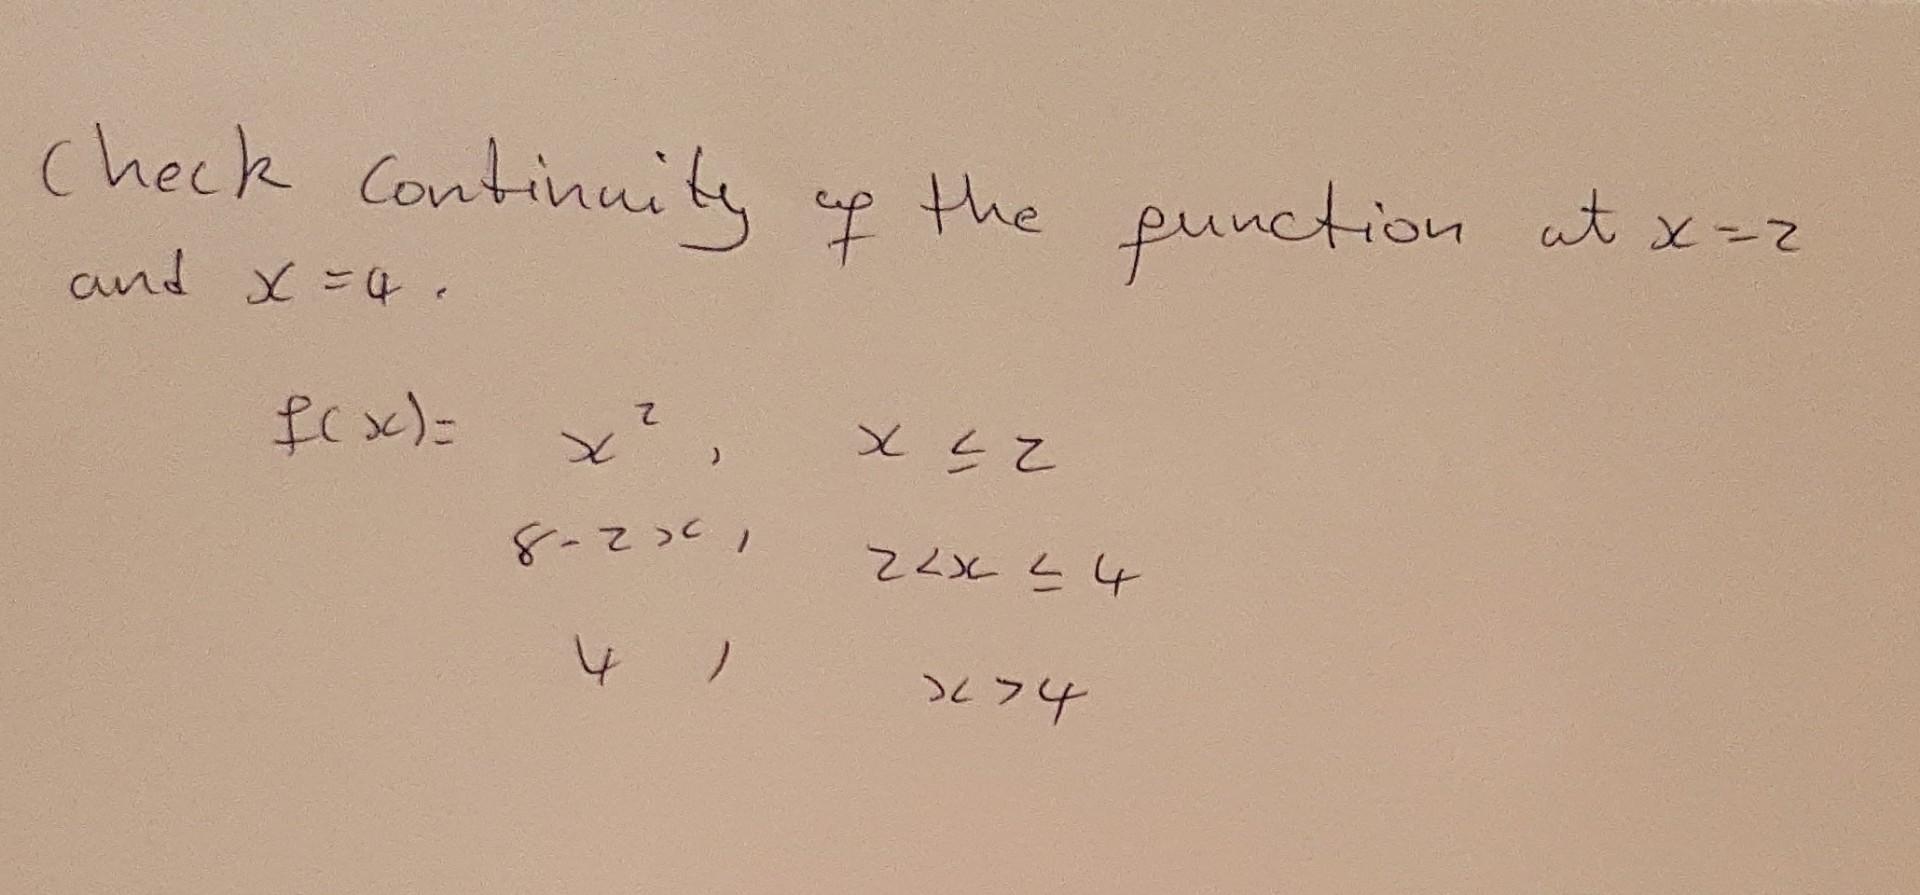 Check Continuity of the function at x=2
and x=4.
f(x)= x², x ≤ 2
8-2x, 2<x ≤ 4
4, x>4